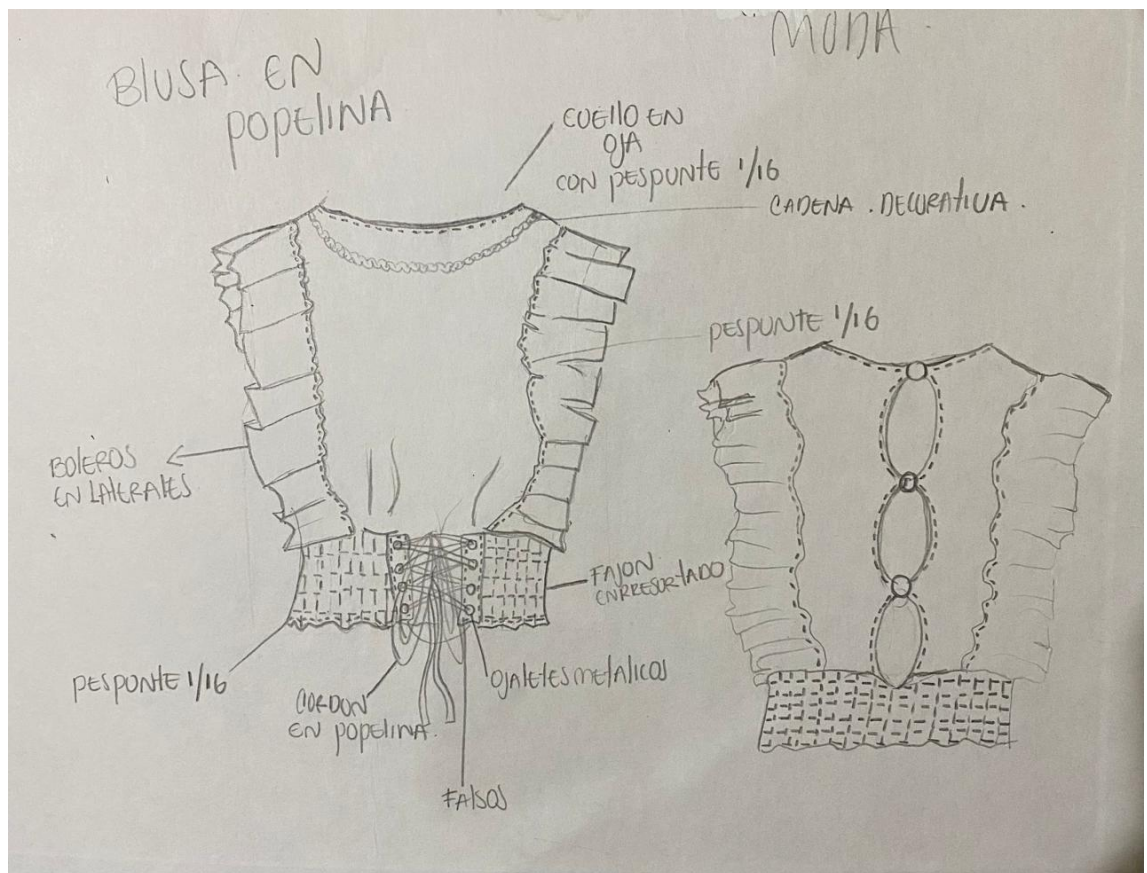 MODA
BLUSA EN
POPELINA
CUELLO EN
OJA
CON PESPUNTE 1/16
CADENA . DECORATIVA .
PESPUNTE 1/16
BOLEROS
EN LATERALES
FAJON
ENRRESORTADO
PESPUNTE 1/16
CORDON
EN POPELINA.
OJALETES METALICOS
FALSOS